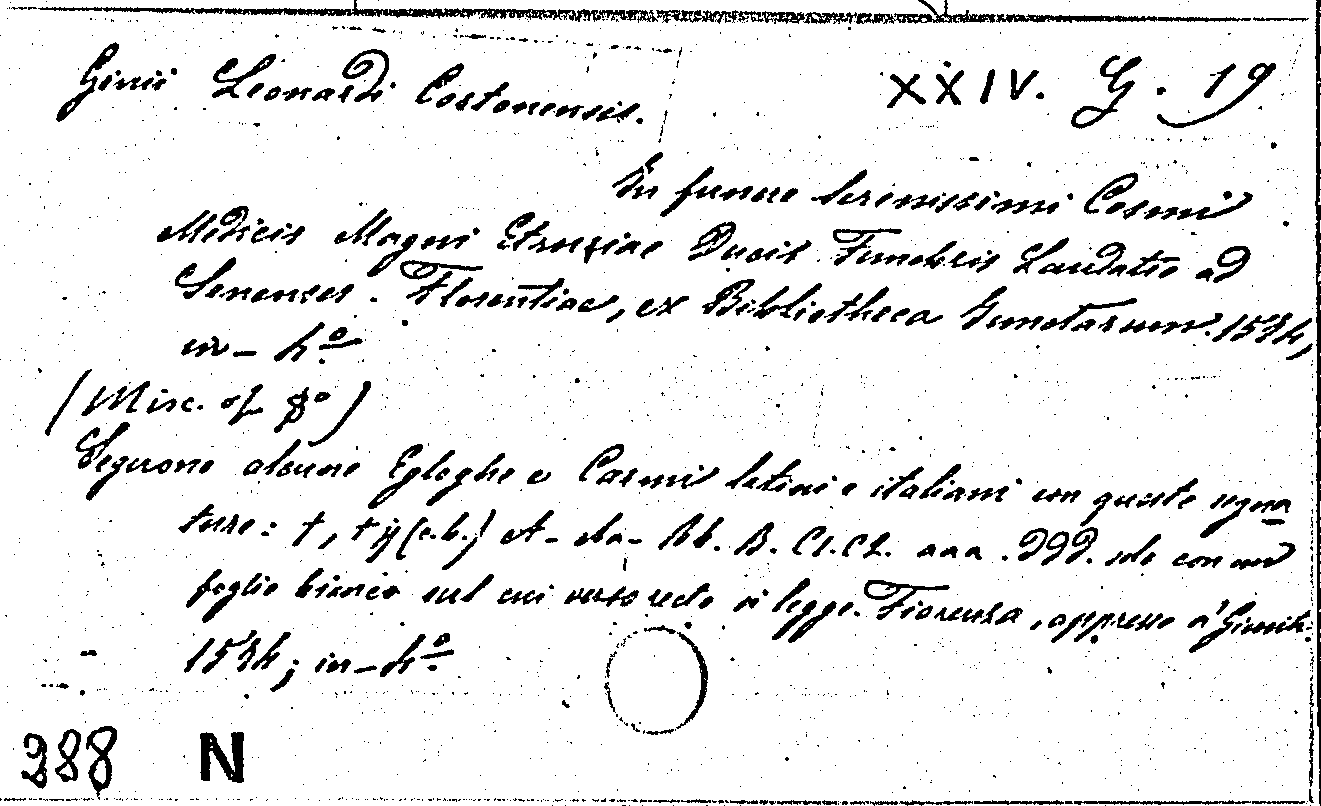 Ginii Leonardi Cortonensis. XXIV. G. 19
In funere Serenissimi Cosmi
Medicis Magni Etruriae Ducis Funebris Laudatio ad
Senenses. Florentiae, ex Bibliotheca Junctarum. 1574,
in-4º
(Misc. of 8º)
Seguono alcune Egloghe e Carmi latini e italiani con queste segna
ture: †, † ij (e.b.) A- Aa- Bb. B. C1.C2. aaa. DDD. con un
foglio bianco sul cui verso recto si legge. Fiorenza, appresso a' Giunti.
1574; in-4º
388 N